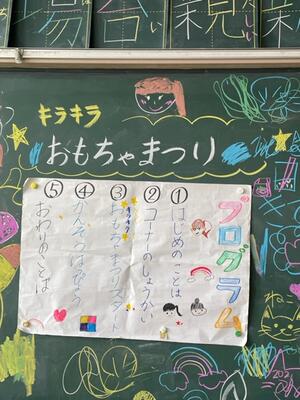 キラキラ
おもちゃまつり
プログラム
①はじめのことば
②コーナーのしょうかい
③おもちゃまつりスタート
④かんそうはっぴょう
⑤おわりのことば
ねこ